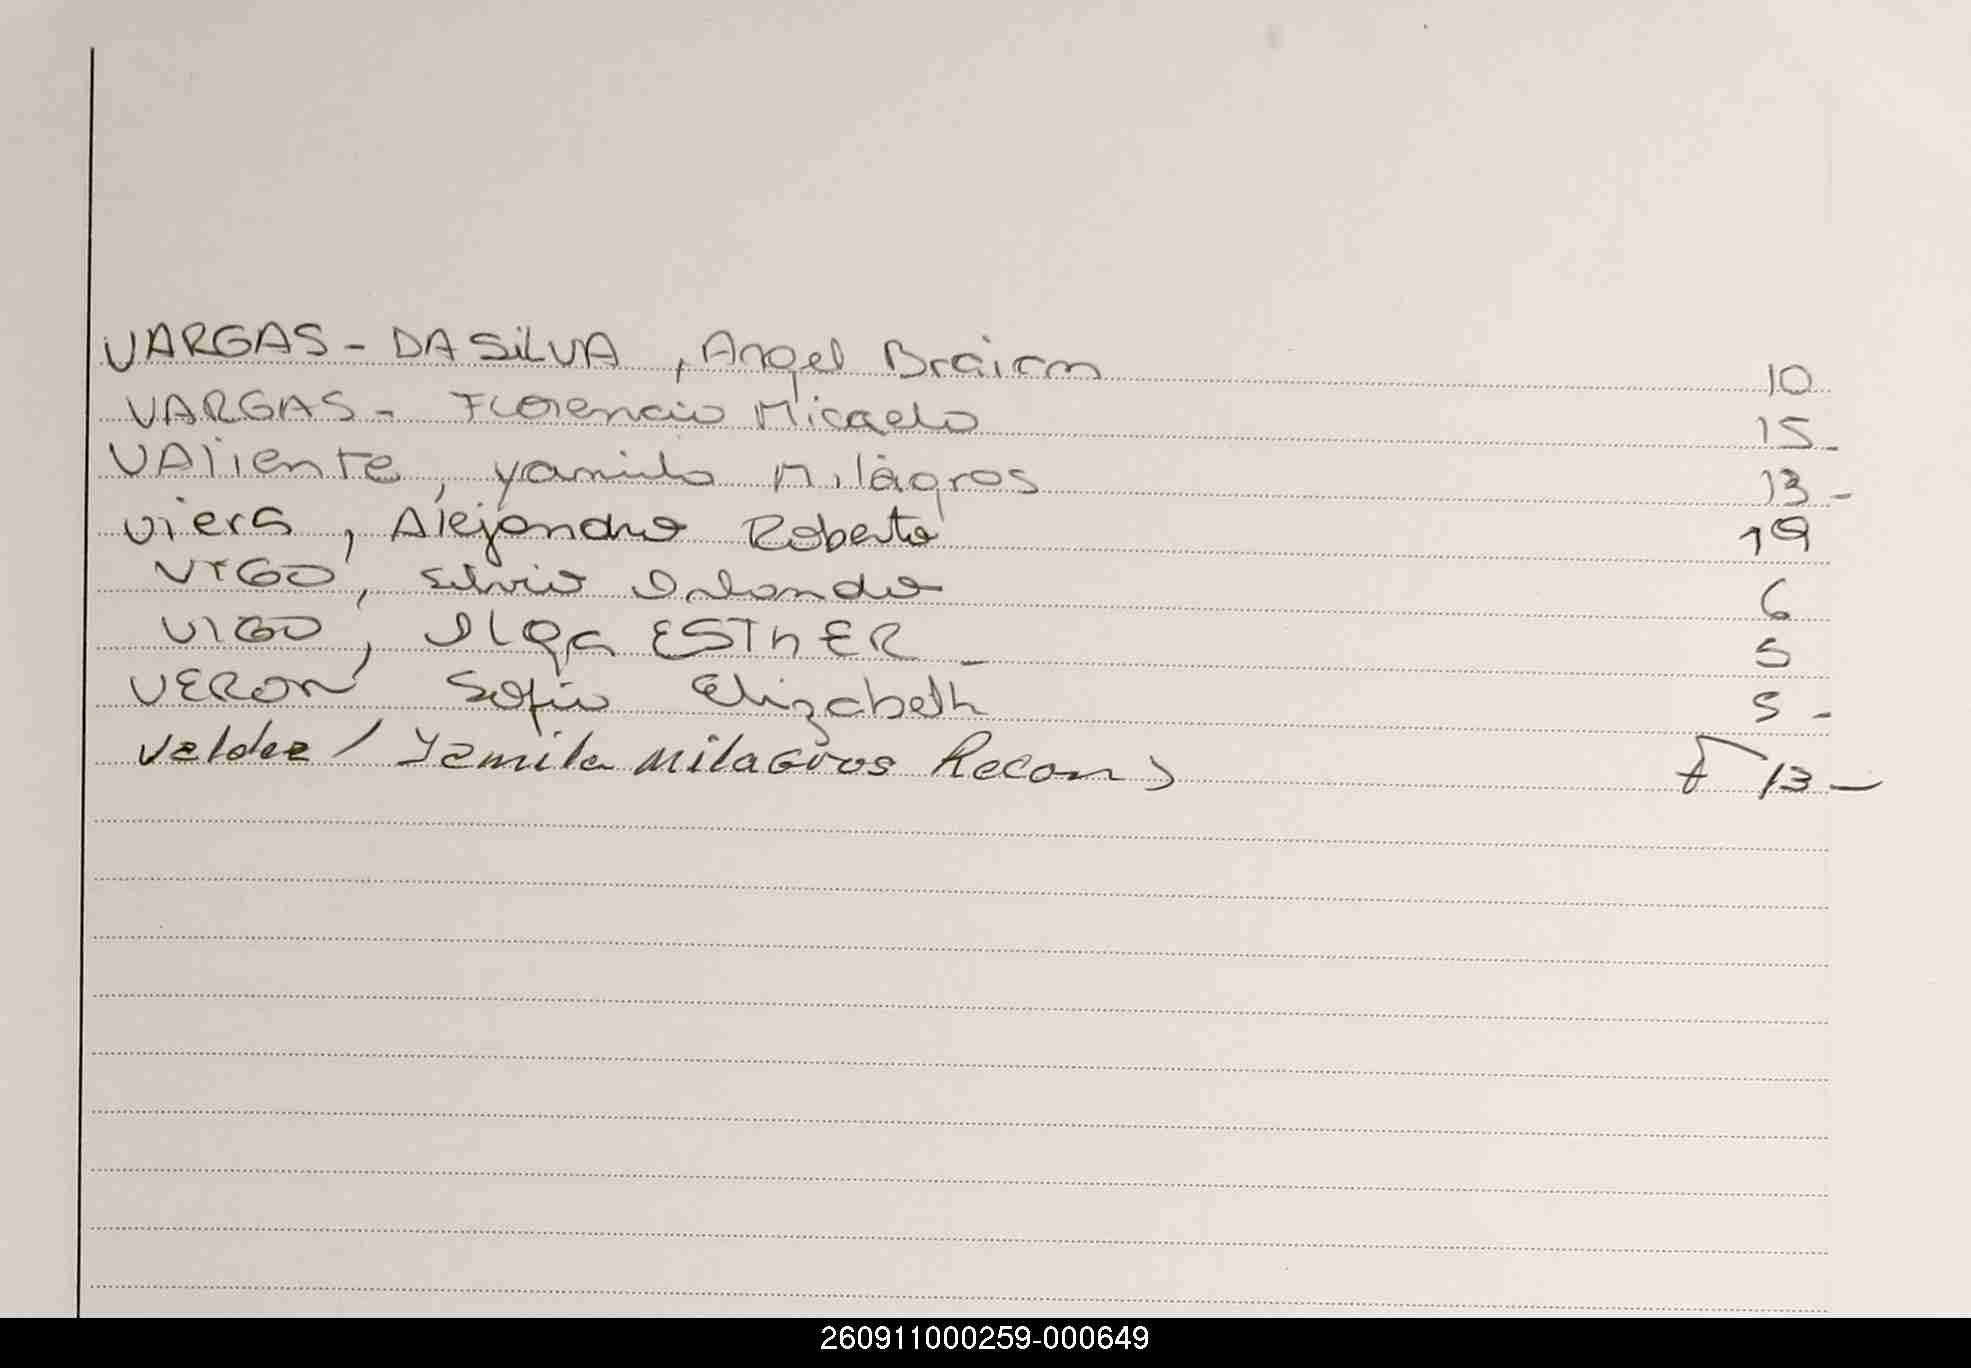 VARGAS - DA SilVA , Angel Braian 10
VARGAS - Florencia Micaela 15 -
VAliente , Yamila Milagros 13 -
Viera , Alejandro Roberto 19
VIGO , Silvio Orlando 6
VIGO , Ilga ESThER - 5
VERON Sofia Elizabeth 5 -
Valdez / Yamila Milagros Recon ) F 13 -
260911000259-000649